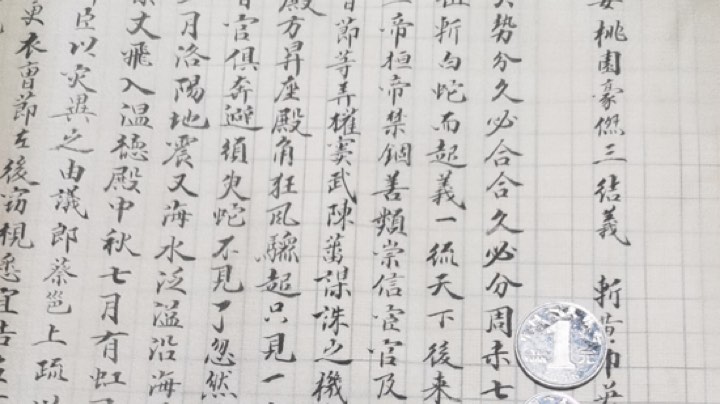 宴桃園豪傑三結義 斬黃巾英
大势分久必合合久必分周末七
祖斬白蛇而起義一統天下後來
二帝桓帝禁錮善類崇信宦官及
曹節等弄權竇武陳蕃謀誅之機
殿方昇座殿角狂風驟起只見一
百官俱奔避須臾蛇不見了忽然
二月洛陽地震又海水泛溢沿海
餘丈飛入溫德殿中秋七月有虹
臣以災異之由議郎蔡邕上疏以
更衣曹節在後窃視悉宣告左
1
元